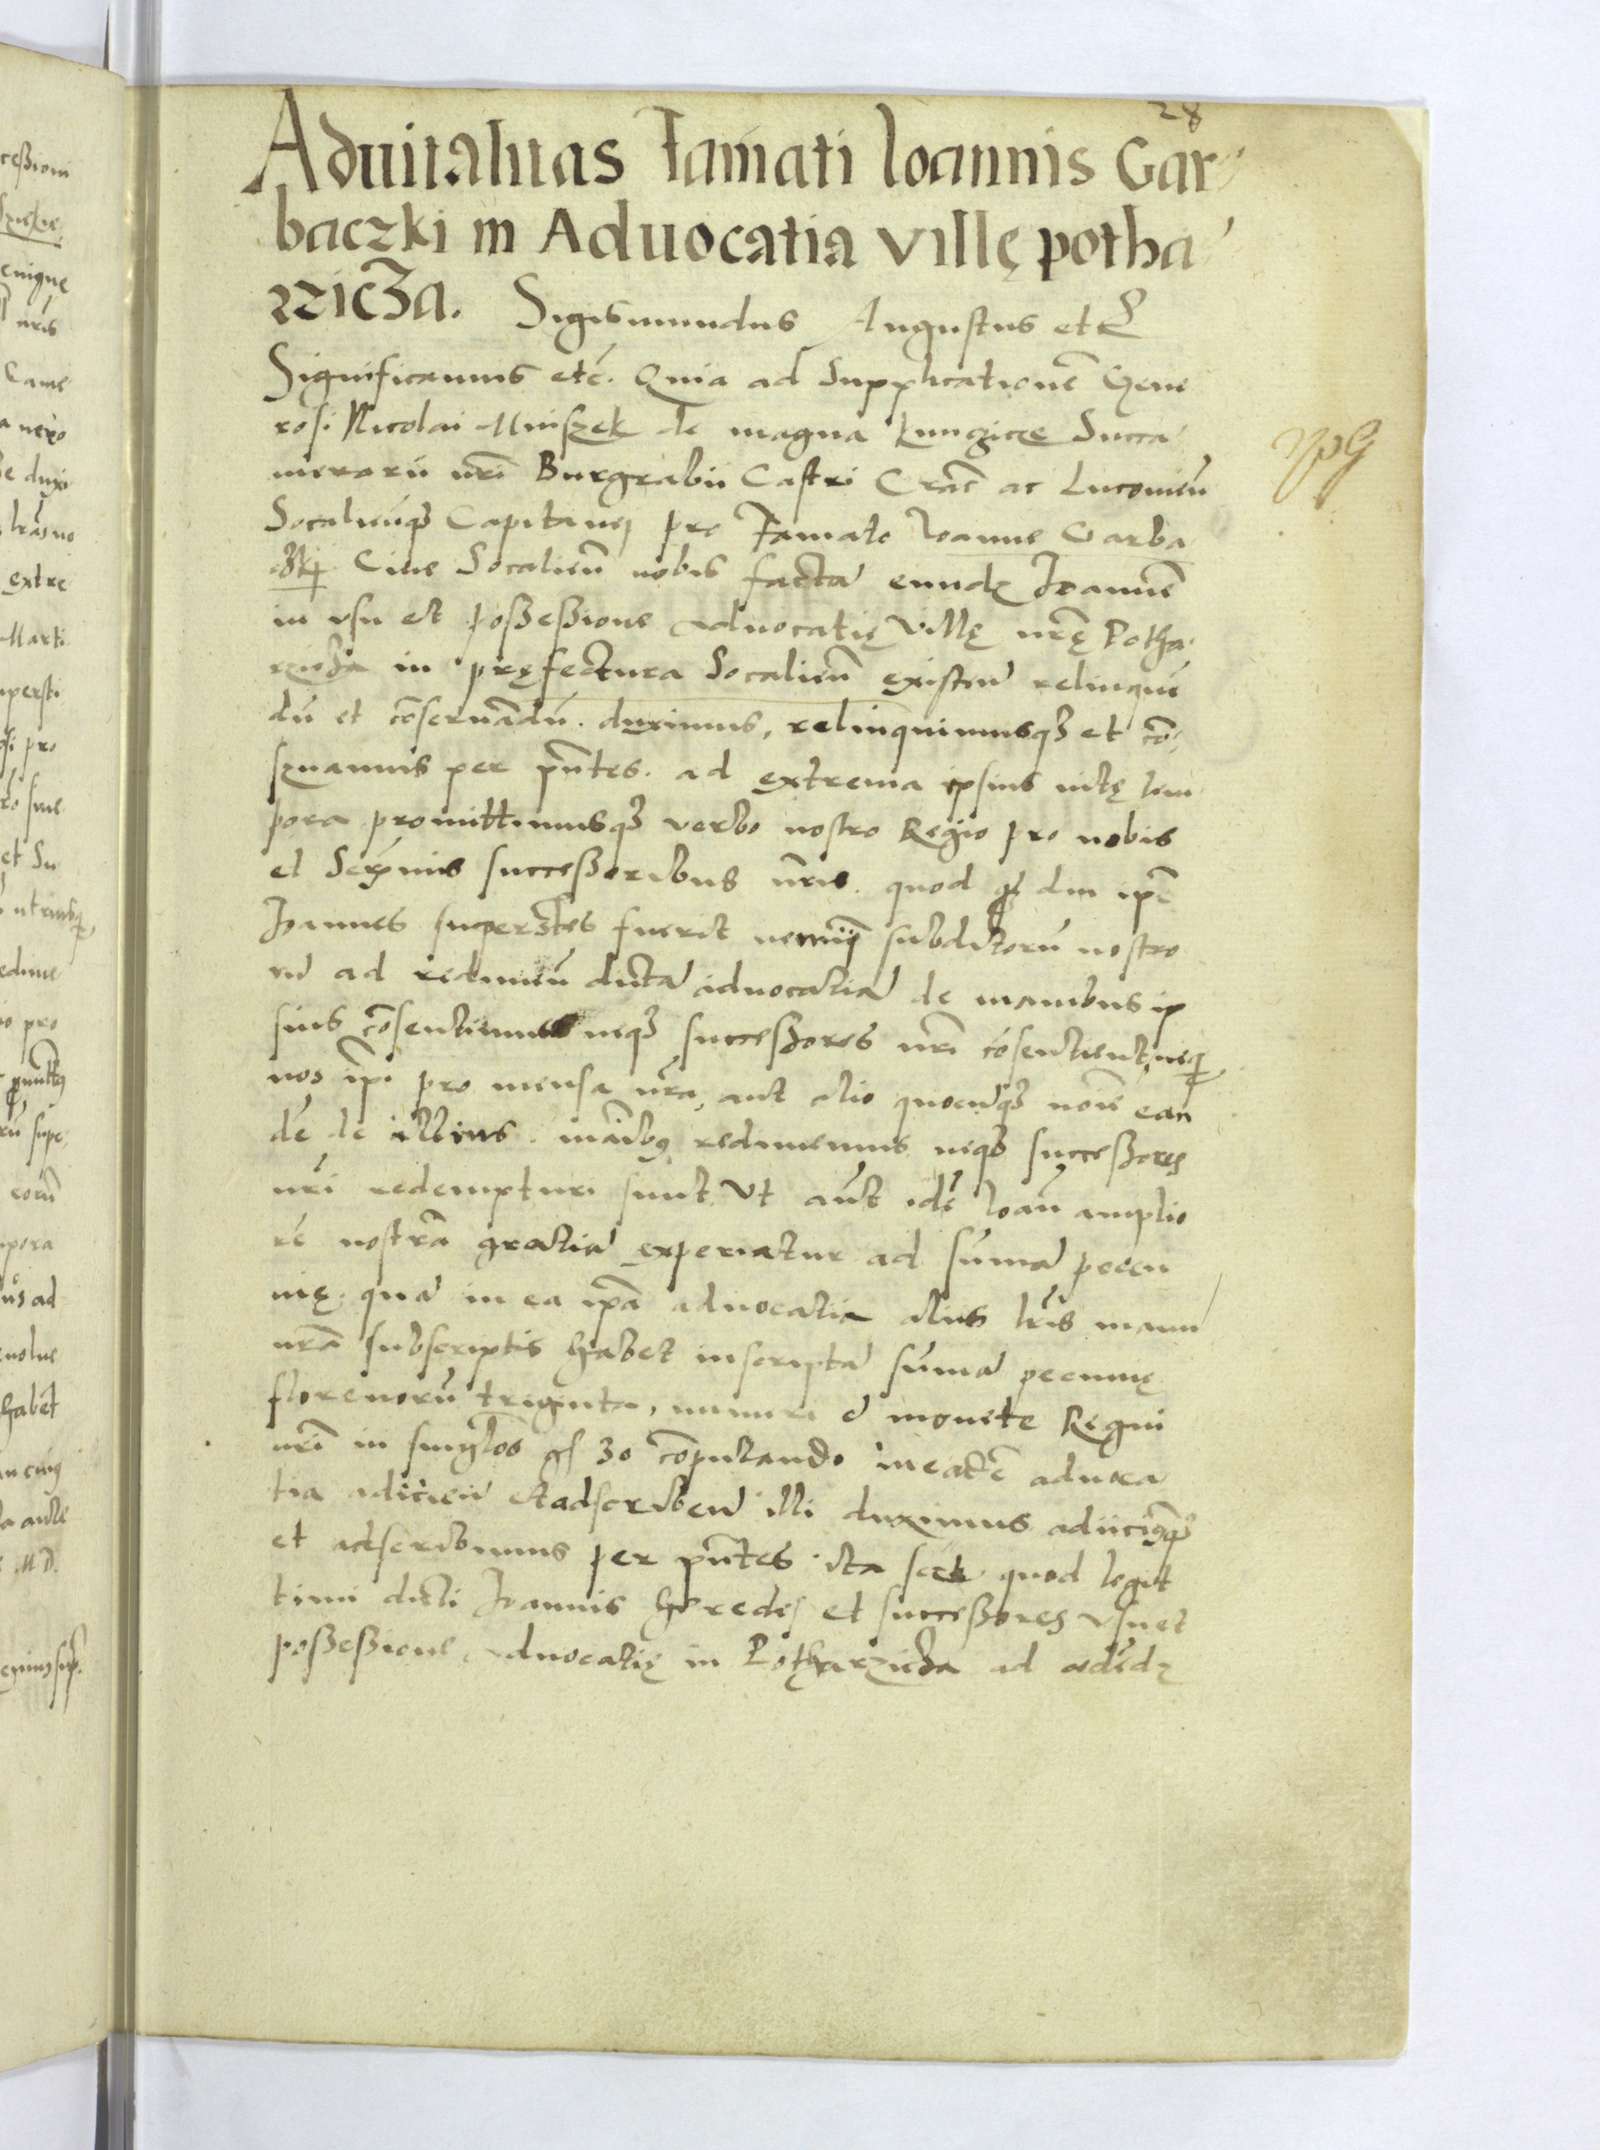 28
Aduitalitas famati Ioannis Gar
baczki in Aduocatia villę potha
rzicza. Sigismundus Augustus etc
Significamus etc. Quia ad Supplicationē Gene
rosi Nicolai Mniszek de magna Kunczicze Succa
merarii nrī Burgrabii Castri Crac̄ ac Lucovien̄
Socalien̄qȝ Capitanei pro Famato Ioanne Garba
czkj Ciue Socalien̄ nobis factā eundȩ Ioannē
in vsu et possessione aduocatię Villę nrę̄ Potha
rzicza in pręfectura Socalien̄ existen̄ relinquē
dū et cōseruādū duximus, relinquimusqȝ et cō
seruamus per pn̄tes. ad extrema ipsius vitę tem
pora promittimusqȝ verbo nostro Regio pro nobis
et Serēnis successoribus nr̄is. quod dum ipē
Ioannes superstes fuerit nemīi subditorū nostro
rū ad redimen̄ dictā aduocatiā de manibus ip
sius cōsentimus neqȝ successores nrī cōsentient, neqȝ
nos ipī pro mensa nr̄a, aut alio quocūqȝ noīe ean
dē de illius manibȝ redimemus neqȝ successores
nrī redempturi sunt Vt aūt idē Ioan̄ amplio
rē nostrā gratiā experiatur ad sūmā pecu
nię. quā in ea ipā aduocatia aliis lr̄is manu
nr̄a subscriptis habet inscriptā sūmā pecunię
florenorū triginta, numeri et monete Regni
nrī in singlos gs 30 cōputando in eadē aduoca
tia adiicien̄ et adscriben̄ illi duximus adiicimȝqȝ
et adscribimus per pn̄tes ita quod legit
timi dicti Ioannis heredes et successores vsu et
possessione aduocatię in Potharzicza ad